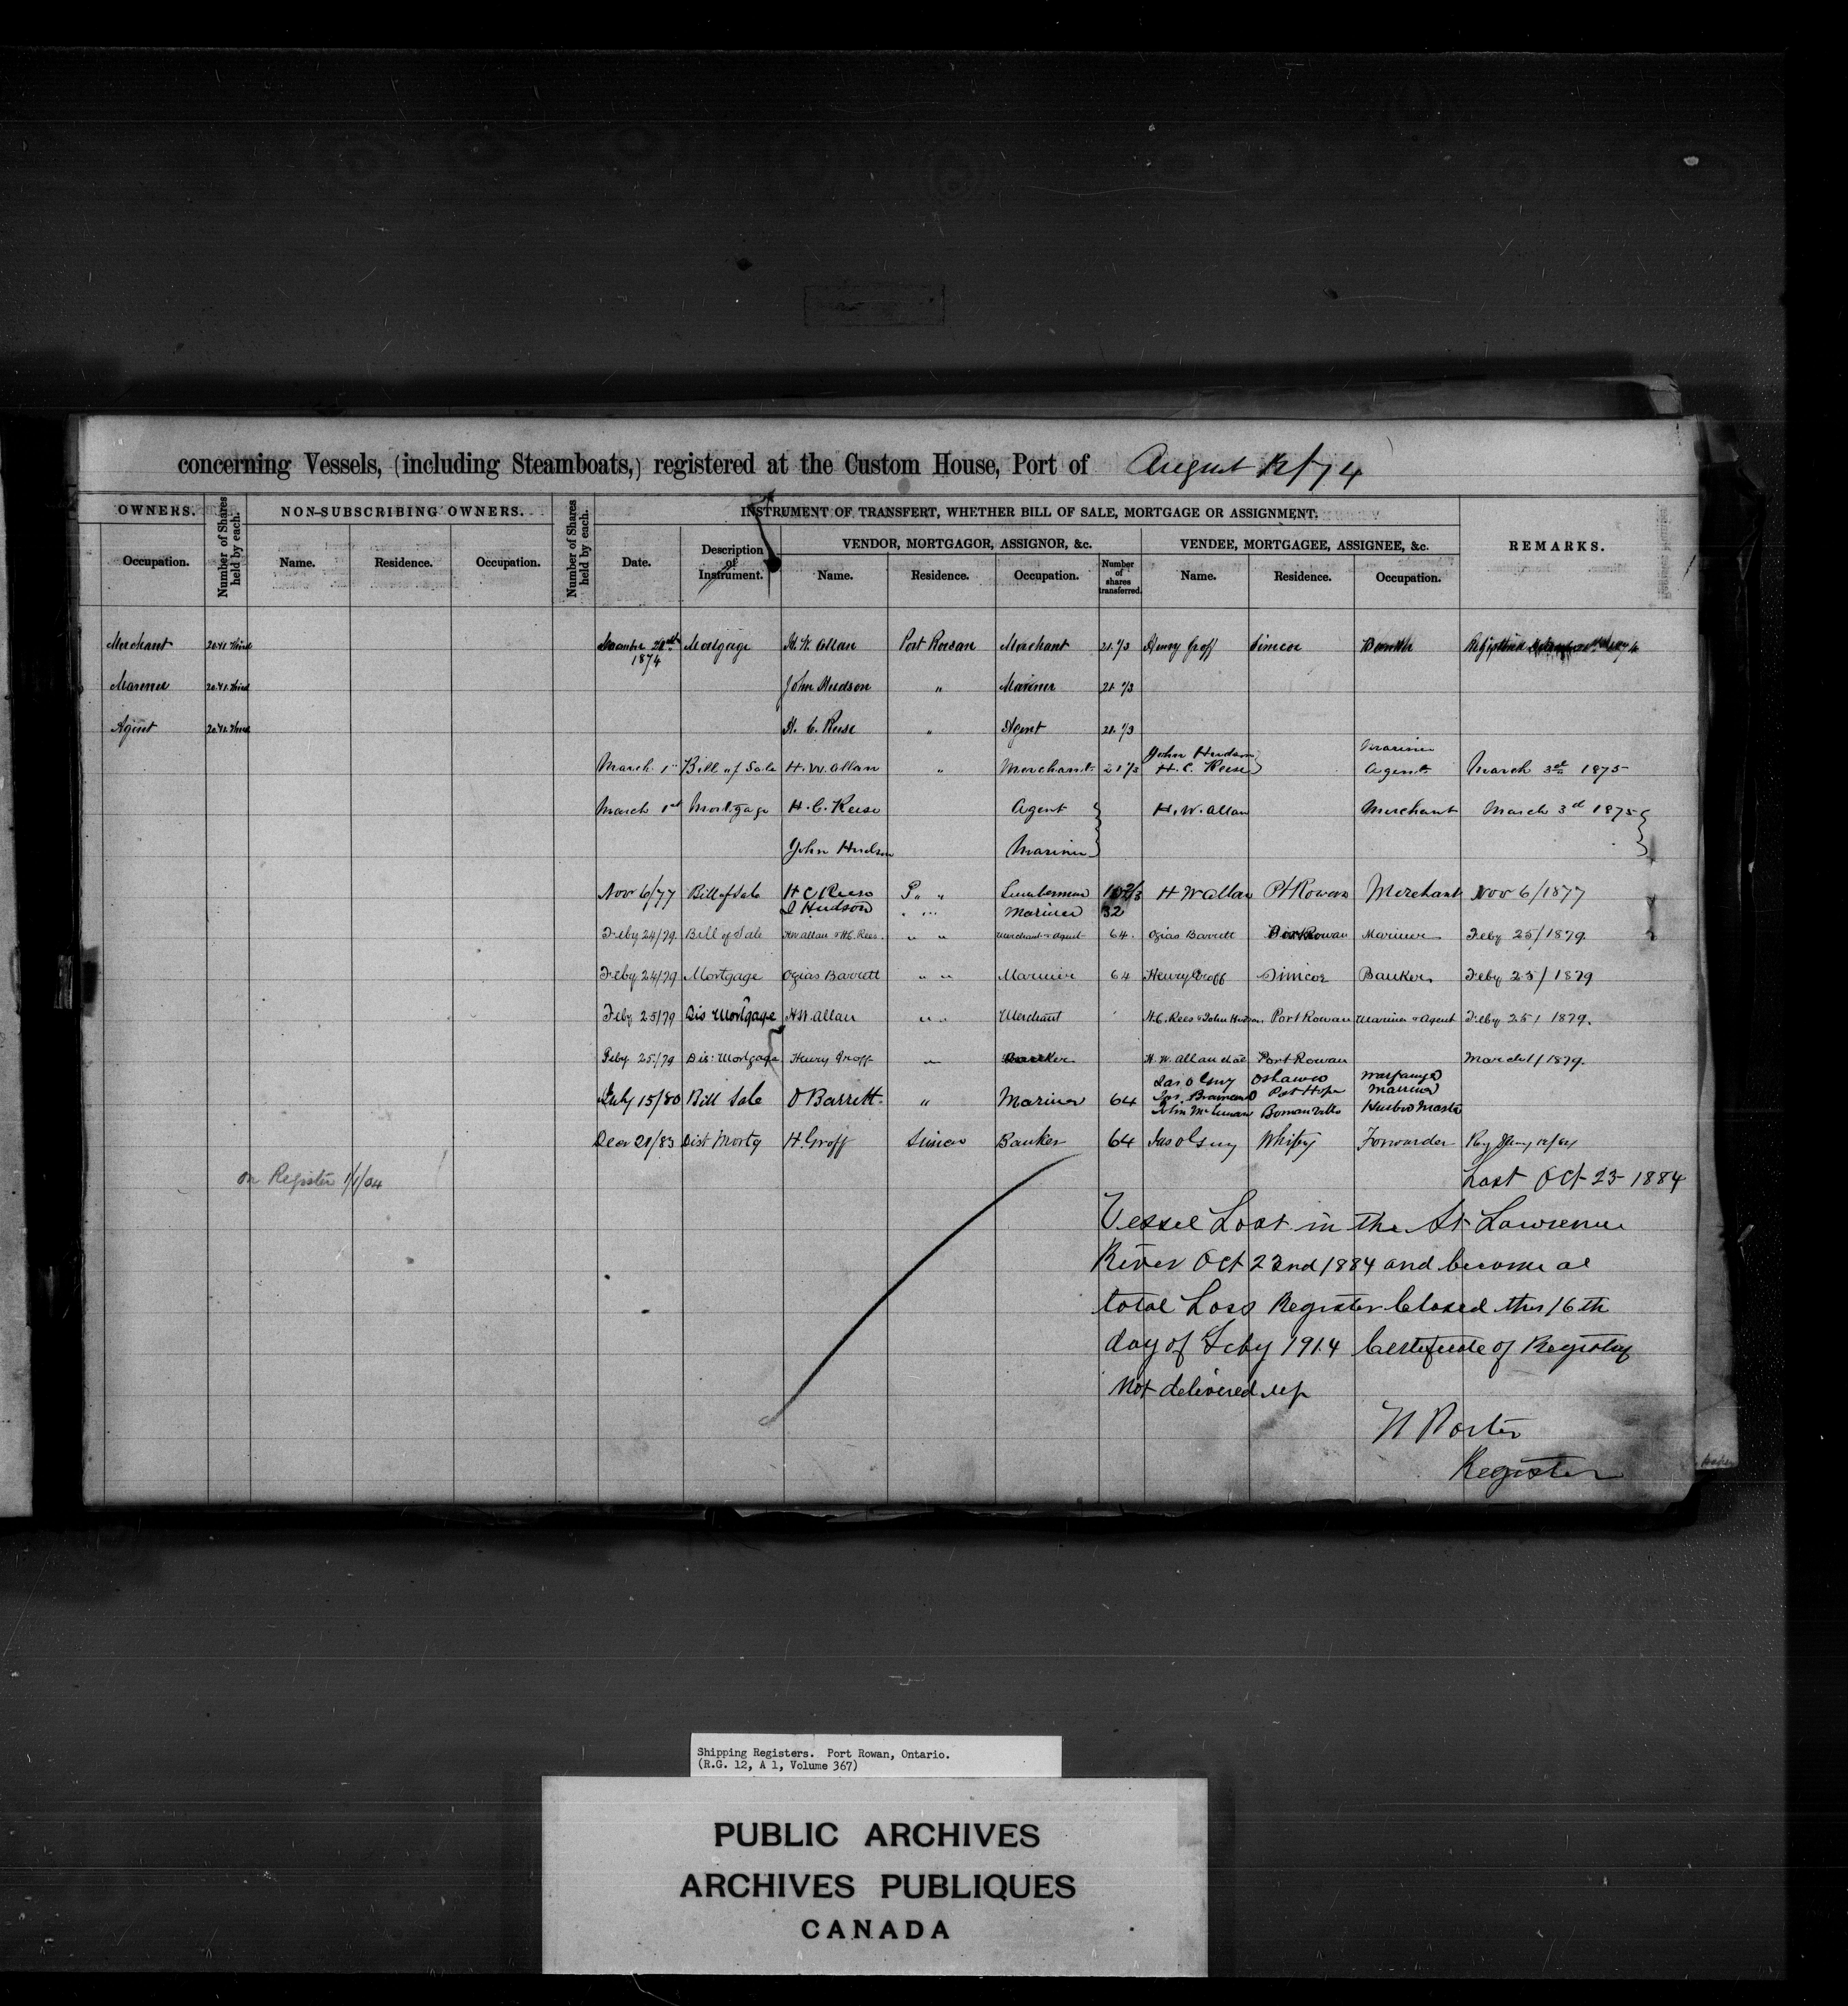 concerning Vessels, (including Steamboats,) registered at the Custom House, Port of August 12/74
OWNERS. Number of Shares held by each. NON-SUBSCRIBING OWNERS. Number of Shares held by each. INSTRUMENT OF TRANSFERT, WHETHER BILL OF SALE, MORTGAGE OR ASSIGNMENT. REMARKS.
VENDOR, MORTGAGOR, ASSIGNOR, &c. VENDEE, MORTGAGEE, ASSIGNEE, &c.
Occupation. Name. Residence. Occupation. Date. Description of Instrument. Name. Residence. Occupation. Number of shares transferred. Name. Residence. Occupation.
Merchant Mortgage H. W. Allan Port Rowan Merchant 21 1/3 Henry Groff Simcoe
1874
Mariner John Hudson " Mariner 21 1/3
Agent H. C. Reese " Agent 21 1/3
John Hudson Mariner
March 1st Bill of Sale H. W. Allan " Merchant 21 1/3 H. C. Reese Agent March 3rd 1875
March 1st Mortgage H. C. Reese Agent H. W. Allan Merchant March 3rd 1875
John Hudson Mariner
Nov 6/77 Bill of Sale H C Reese P " " Lumberman H W Allan Pt Rowan Merchant Nov 6/1877
J Hudson " " Mariner 32
Feby 24/79 Bill of Sale H W Allan & H. C. Rees. " " Merchant & Agent 64. Ozias Barrett Port Rowan Mariner Feby 25/1879.
Feby 24/79 Mortgage Ozias Barrett " " Mariner 64 Henry Groff Simcoe Banker Feby 25/1879
Feby 25/79 Dis Mortgage H W. Allan " " Merchant H. C. Rees & John Hudson Port Rowan Mariner & Agent Feby 25/1879.
Feby 25/79 Dis: Mortgage Henry Groff " Banker H. W. Allan et al Port Rowan March 1/1879.
Jas O Guy Oshawa
July 15/80 Bill Sale O Barrett " Mariner 64 Jas. Port Hope Mariner
John Bowmanville
Decr 21/83 Dist Mortg H. Groff Simcoe Banker 64 Jas O Guy Whitby Forwarder
on Register 1/1/04
Lost Oct 23 1884
Vessel Lost in the St Lawrence
River Oct 22nd 1884 and become a
total Loss Register Closed this 16th
day of Feby 1914 Certificate of Registry
Not delivered up
W Porter
Register
Shipping Registers. Port Rowan, Ontario.
(R.G. 12, A 1, Volume 367)
PUBLIC ARCHIVES
ARCHIVES PUBLIQUES
CANADA